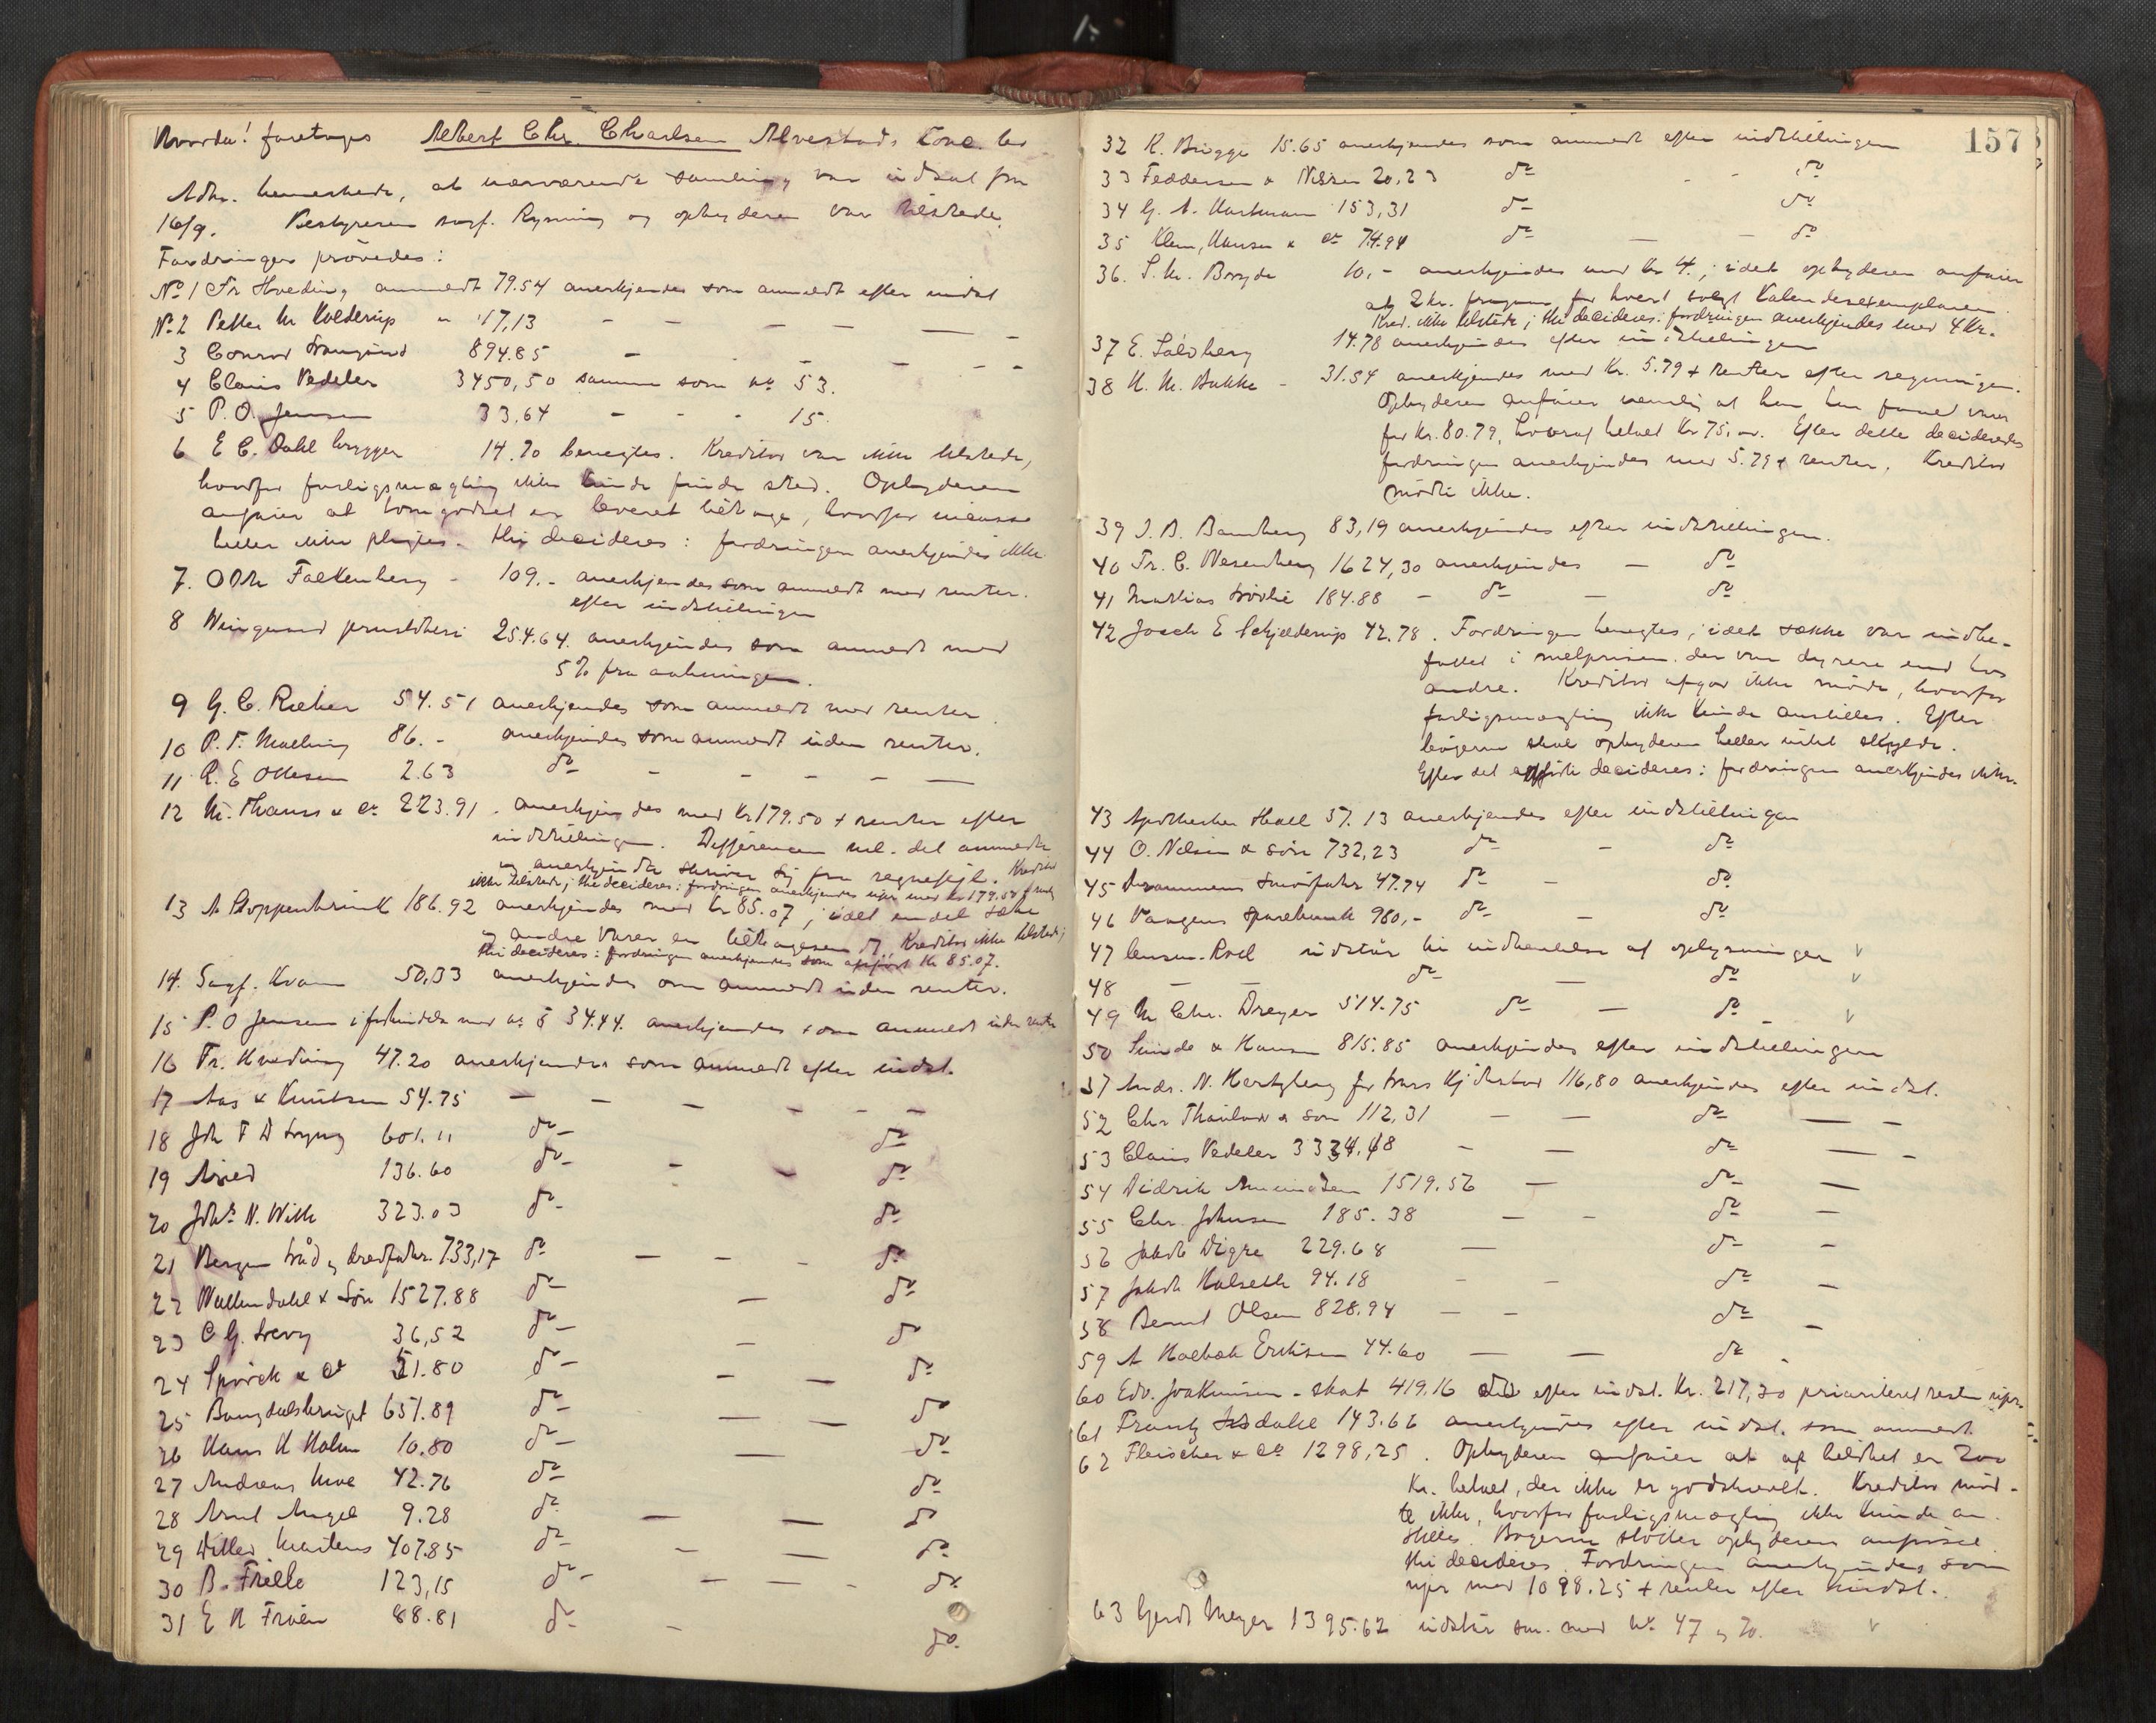 Hvorda! foretages Albert Chr. Charlsen Alvestads Conc. bo
Adm. bemerkede, at nærværende samling var udsat fra
16/9. Bestyreren sagf. Rynning og opbyderen var tilstede.
Fordringer prövedes:
No 1 Fr Hveding anmeldt 79.54 anerkjendes som anmeldt efter indst
No. 2 Petter M Kolderup " 47,13 — — — — —
3 Conrad 894.85 — — — —
4 Claus Vedeler 3450,50 samme som no 53.
5 P. O. Jensen 33,64 - - - 15.
6 E C. Dahl brygger 14.70 benegtes. Kreditor var ikke tilstede,
hvorfor forligsmægling ikke kunde finde sted. Opbyderen
anfører at tomgodset er leveret tilbage, hvorfor
heller ikke pligtes. Thi decideres: fordringen anerkjendes ikke
7. Falkenberg - 109.- anerkjendes som anmeldt med renter.
efter indstillingen
8 Weingaard 254.64. anerkjendes som anmeldt med
5% fra aabningen.
9 G. C. Rieber 54.51 anerkjendes som anmeldt med renter.
10 P. F. Maelung 86.- anerkjendes som anmeldt uden renter.
11 R. E Ottesen 2.63 do - - - - —
12 M. Thams & Co 223.91. anerkjendes med Kr 179.50 + renter efter
indstillingen. Differencen mel. det anmeldte
og anerkjendte skriver sig fra regnefejl. Kreditor
ikke tilstede; thi decideres: fordringen anerkjendes med kr 179.50
13 A Stoppenbrink 186.92 anerkjendes med Kr 85.07, idet endel sække
og andre varer er Kreditor ikke tilstede;
thi decideres: fordringen anerkjendes som anført Kr 85.07.
14. Sagf. Kvam 50,33 anerkjendes som anmeldt uden renter.
15 P. O Jensen i forbindelse med no 5 34.44. anerkjendes som anmeldt uden renter
16 Fr. Hveding 47.20 anerkjendes som anmeldt efter indst.
17 Aas & Knutsen 54.75 — — — — — —
18 Joh F D 601.11 do— do
19 136.60 do— - - do
20 Johs N. With 323.03 do- do
21 Bergen 733,17 do — - - do
22 Wallendahl & Sön 1527.88 do— — do
23 C G. 36,52 do— — do
24 Spörck & Co 51.80 do— — — do
25 657.89 do— — — do
26 Hans H Holm 10.80 do— — do
27 Andreas Moe 42.76 do— do
28 Arnt Angel 9.28 do — — do
29 Ditlev Martens 407.85 do — — do.
30 B. Friele 123,15 do- — — - do
31 E A 88.81 do- - do.
157
32 R. Brügge 15.65 anerkjendes som anmeldt efter indstillingen
33 Feddersen & Nissen 20,23 do - - do
34 G. A. Hartmann 153,31 do do
35 Klem, Hansen & Co 74.94 do — - do
36. S. M. Bryde 10.- anerkjendes med kr 4.; idet opbyderen anfører
at 2 kr. for hvert solgt Kalenderexemplarer.
Kred. ikke tilstede; thi decideres: fordringen anerkjendes med 4 Kr.
37 E. Salvberg 14.78 anerkjendes efter indstillingen
38 H. M. Bakke - 31.54 anerkjendes med Kr. 5.79 + renter efter regningen.
Opbyderen anfører nemlig at han har faaet varer
for Kr. 80.79, hvoraf betalt Kr 75,-. Efter dette decideredes
fordringen anerkjendes med 5.79 + renter. Kreditor
mödte ikke.
39 J. B. 83,19 anerkjendes efter indstillingen.
40 Fr. C. Wesenberg 1624,30 anerkjendes — do
41 Mathias 184.88 - do — do
42 Jacob E Schjelderup 42.78. Fordringen benegtes; idet sække var indbe-
fattet i melprisen. der var dyrere end hos
andre. Kreditor afgav ikke möde, hvorfor
forligsmægling ikke kunde anstilles. Efter
bögerne skal opbyderen heller intet skylde.
Efter det anförte decideres: fordringen anerkjendes ikke.
43 Apotheker Hall 57.13 anerkjendes efter indstillingen
44 O. Nilsen & sön 732,23 do - do
45 Drammens 47.74 do — do
46 Vangens Sparebank 980,- do — do
47 udstår til indhentelse af oplysninger v
48 — — do — do v
49 M Chr. Dreyer 514.75 do — do - v
50 Sunde & Hansen 815.85 anerkjendes efter indstillingen
51 Andr. N. Hertzberg for 116,80 anerkjendes efter indst.
52 Chr Thaulow & sön 112,31 — — do — -
53 Claus Vedeler 3334.48 - — do — -
54 Didrik Amundsen 1519.56 — do — —
55 Chr. Johnsen 185.38 — - do —
56 Jakob Digre 229.68 — do- -
57 Jakob Halseth 94.18 - - do —
58 Bernt Olsen 828.94 — - do —
59 A Holbæk Eriksen 44.60 — — do -
60 Edv. Joakimsen - skat 419.16 efter indst. Kr. 217,30 prioriteret resten upr.
61 Frantz 143.62 anerkjendes efter indst. som anmeldt
62 Fleischer & Co 1298,25. Opbyderen anfører at af belöbet er 200
Kr. betalt, der ikke er godskrevet. Kreditor möd-
te ikke, hvorfor forligsmægling ikke kunde an-
stilles. Bögerne stötter opbyderens anförsel.
thi decideres. Fordringen anerkjendes som
upr med 1098.25 + renter efter indst.
63 Gerdt Meyer 1395.62 udstår sm. med No 47 v